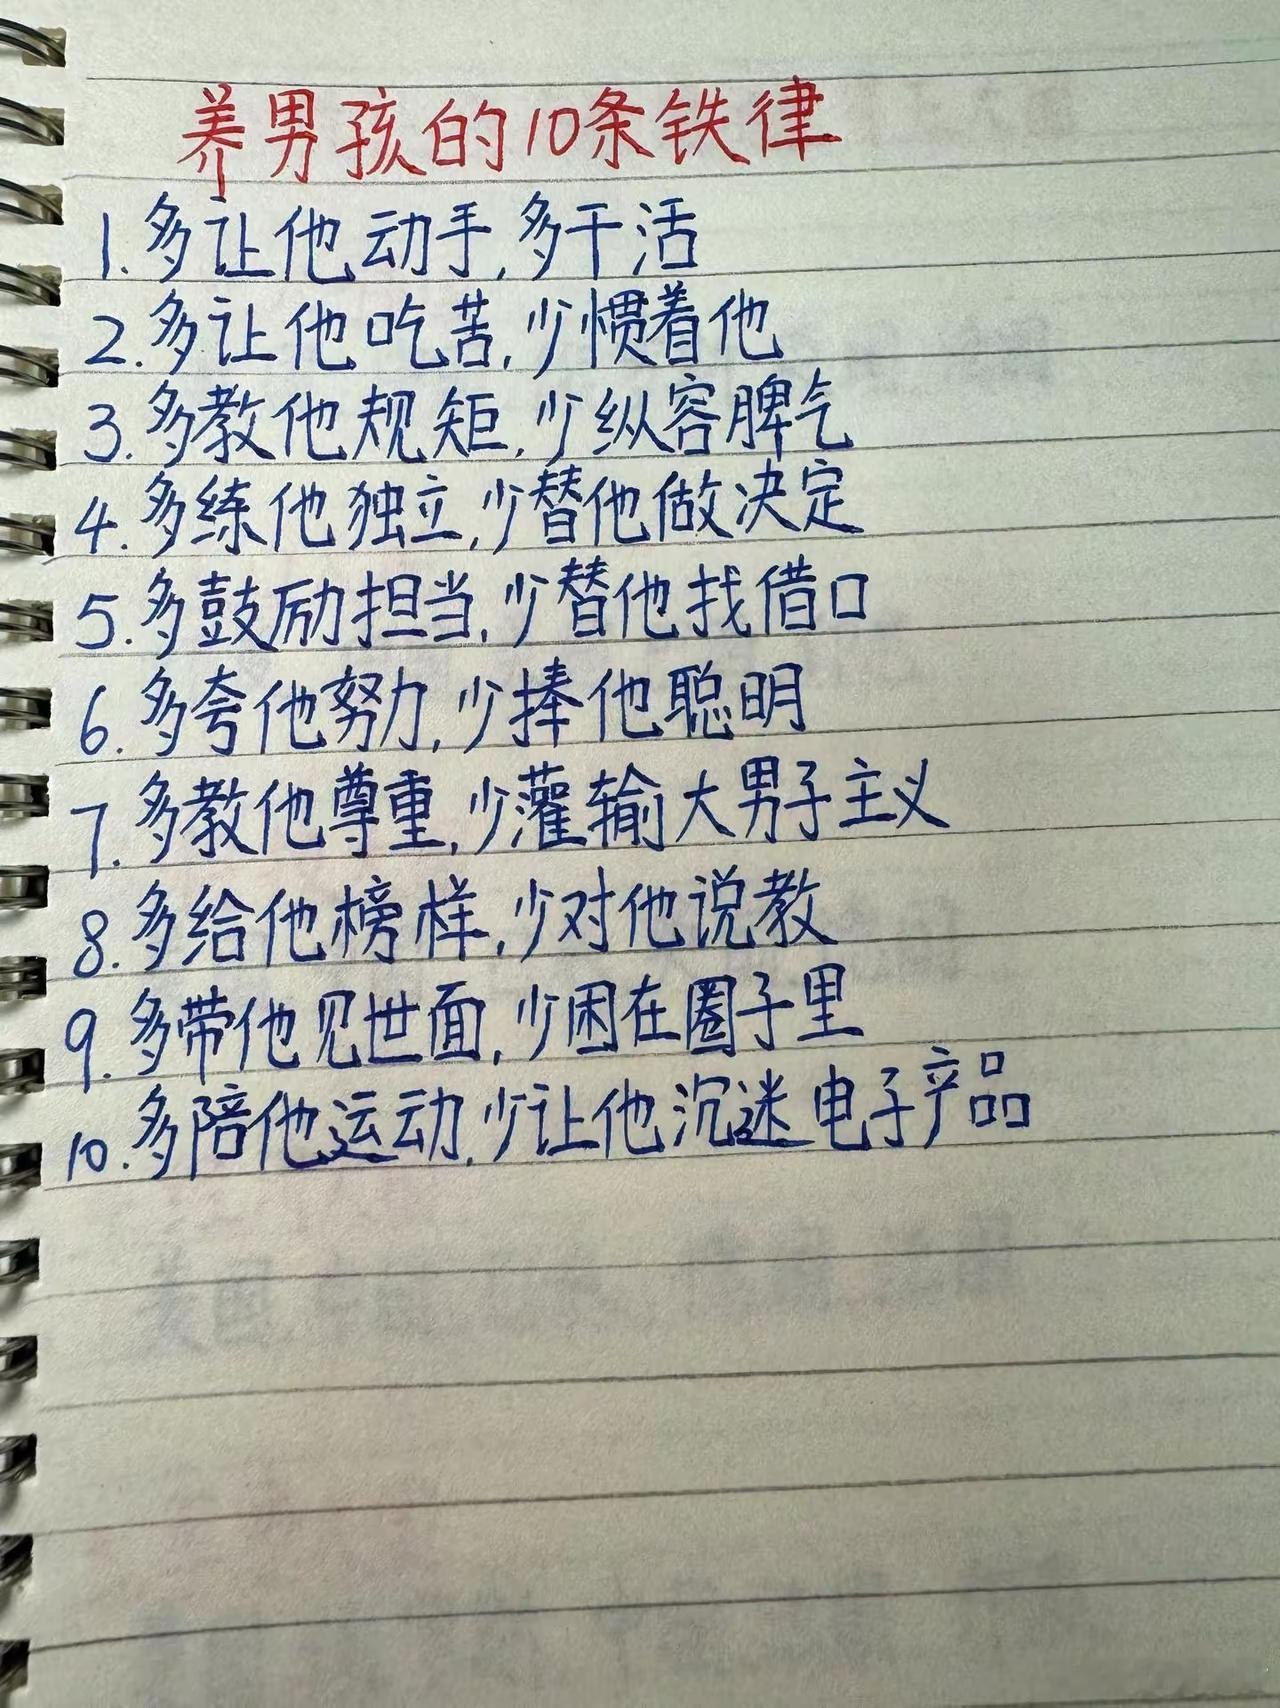 养男孩的10条铁律
1.多让他动手,多干活
2.多让他吃苦,少惯着他
3.多教他规矩,少纵容脾气
4.多练他独立,少替他做决定
5.多鼓励担当,少替他找借口
6.多夸他努力,少捧他聪明
7.多教他尊重,少灌输大男子主义
8.多给他榜样,少对他说教
9.多带他见世面,少困在圈子里
10.多陪他运动,少让他沉迷电子产品